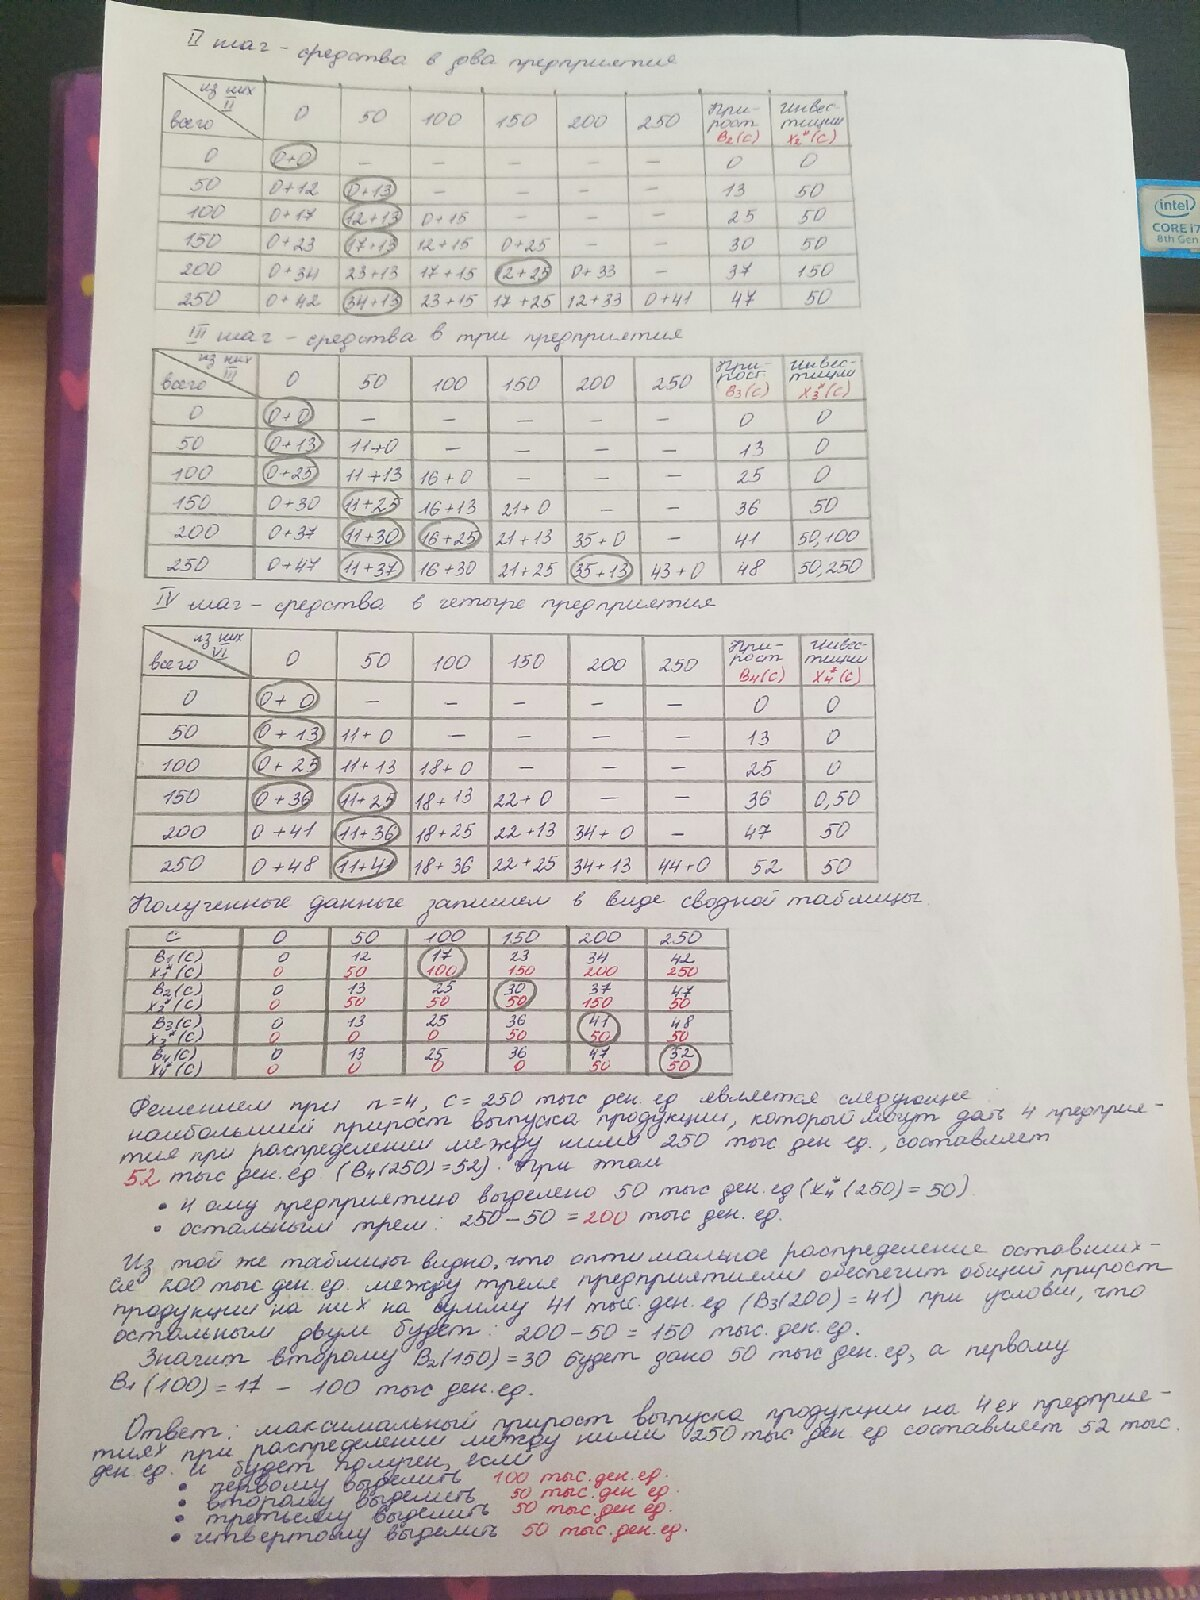 II шаг - средства в два предприятия
из них II всего 0 50 100 150 200 250 При-рост B₂(C) Инвес-тиции X₂*(C)
0 0+0 – – – – – 0 0
50 0+12 0+13 – – – – 13 50
100 0+17 12+13 0+15 – – – 25 50
150 0+23 17+13 12+15 0+25 – – 30 50
200 0+34 23+13 17+15 12+25 0+33 – 37 150
250 0+42 34+13 23+15 17+25 12+33 0+41 47 50
III шаг - средства в три предприятия
из них III всего 0 50 100 150 200 250 При-рост B₃(C) Инвес-тиции X₃*(C)
0 0+0 – – – – – 0 0
50 0+13 11+0 – – – – 13 0
100 0+25 11+13 16+0 – – – 25 0
150 0+30 11+25 16+13 21+0 – – 36 50
200 0+37 11+30 16+25 21+13 35+0 – 41 50,100
250 0+47 11+37 16+30 21+25 35+13 43+0 48 50,250
IV шаг - средства в четыре предприятия
из них VI всего 0 50 100 150 200 250 При-рост B₄(C) Инвес-тиции X₄*(C)
0 0+0 – – – – – 0 0
50 0+13 11+0 – – – – 13 0
100 0+25 11+13 18+0 – – – 25 0
150 0+36 11+25 18+13 22+0 – – 36 0,50
200 0+41 11+36 18+25 22+13 34+0 – 47 50
250 0+48 11+41 18+36 22+25 34+13 44+0 52 50
Полученные данные запишем в виде сводной таблицы.
C 0 50 100 150 200 250
B₁(C) 0 12 17 23 34 42
X₁*(C) 0 50 100 150 200 250
B₂(C) 0 13 25 30 37 47
X₂*(C) 0 50 50 50 150 50
B₃(C) 0 13 25 36 41 48
X₃*(C) 0 0 0 50 50 50
B₄(C) 0 13 25 36 47 52
X₄*(C) 0 0 0 0 50 50
Решением при n=4, C=250 тыс ден.ед является следующее
наибольший прирост выпуска продукции, который могут дать 4 предприя-
тия при распределении между ними 250 тыс ден ед., составляет
52 тыс ден.ед. (B₄(250)=52). При этом
• 4ому предприятию выделено 50 тыс ден.ед (X₄*(250)=50)
• остальным трем: 250-50=200 тыс ден.ед.
Из той же таблицы видно, что оптимальное распределение оставших-
ся 200 тыс ден.ед. между тремя предприятиями обеспечит общий прирост
продукции на них на сумму 41 тыс.ден.ед (B₃(200)=41) при условии, что
остальным двум будет: 200-50=150 тыс.ден.ед.
Значит второму B₂(150)=30 будет дано 50 тыс ден.ед, а первому
B₁(100)=17 - 100 тыс ден.ед.
Ответ: максимальный прирост выпуска продукции на 4ех предприя-
тиях при распределении между ними 250 тыс ден ед составляет 52 тыс.
ден.ед. и будет получен, если
• первому выделить 100 тыс.ден.ед.
• второму выделить 50 тыс.ден ед.
• третьему выделить 50 тыс.ден.ед.
• четвертому выделить 50 тыс.ден.ед.
intel
CORE i7
8th Gen